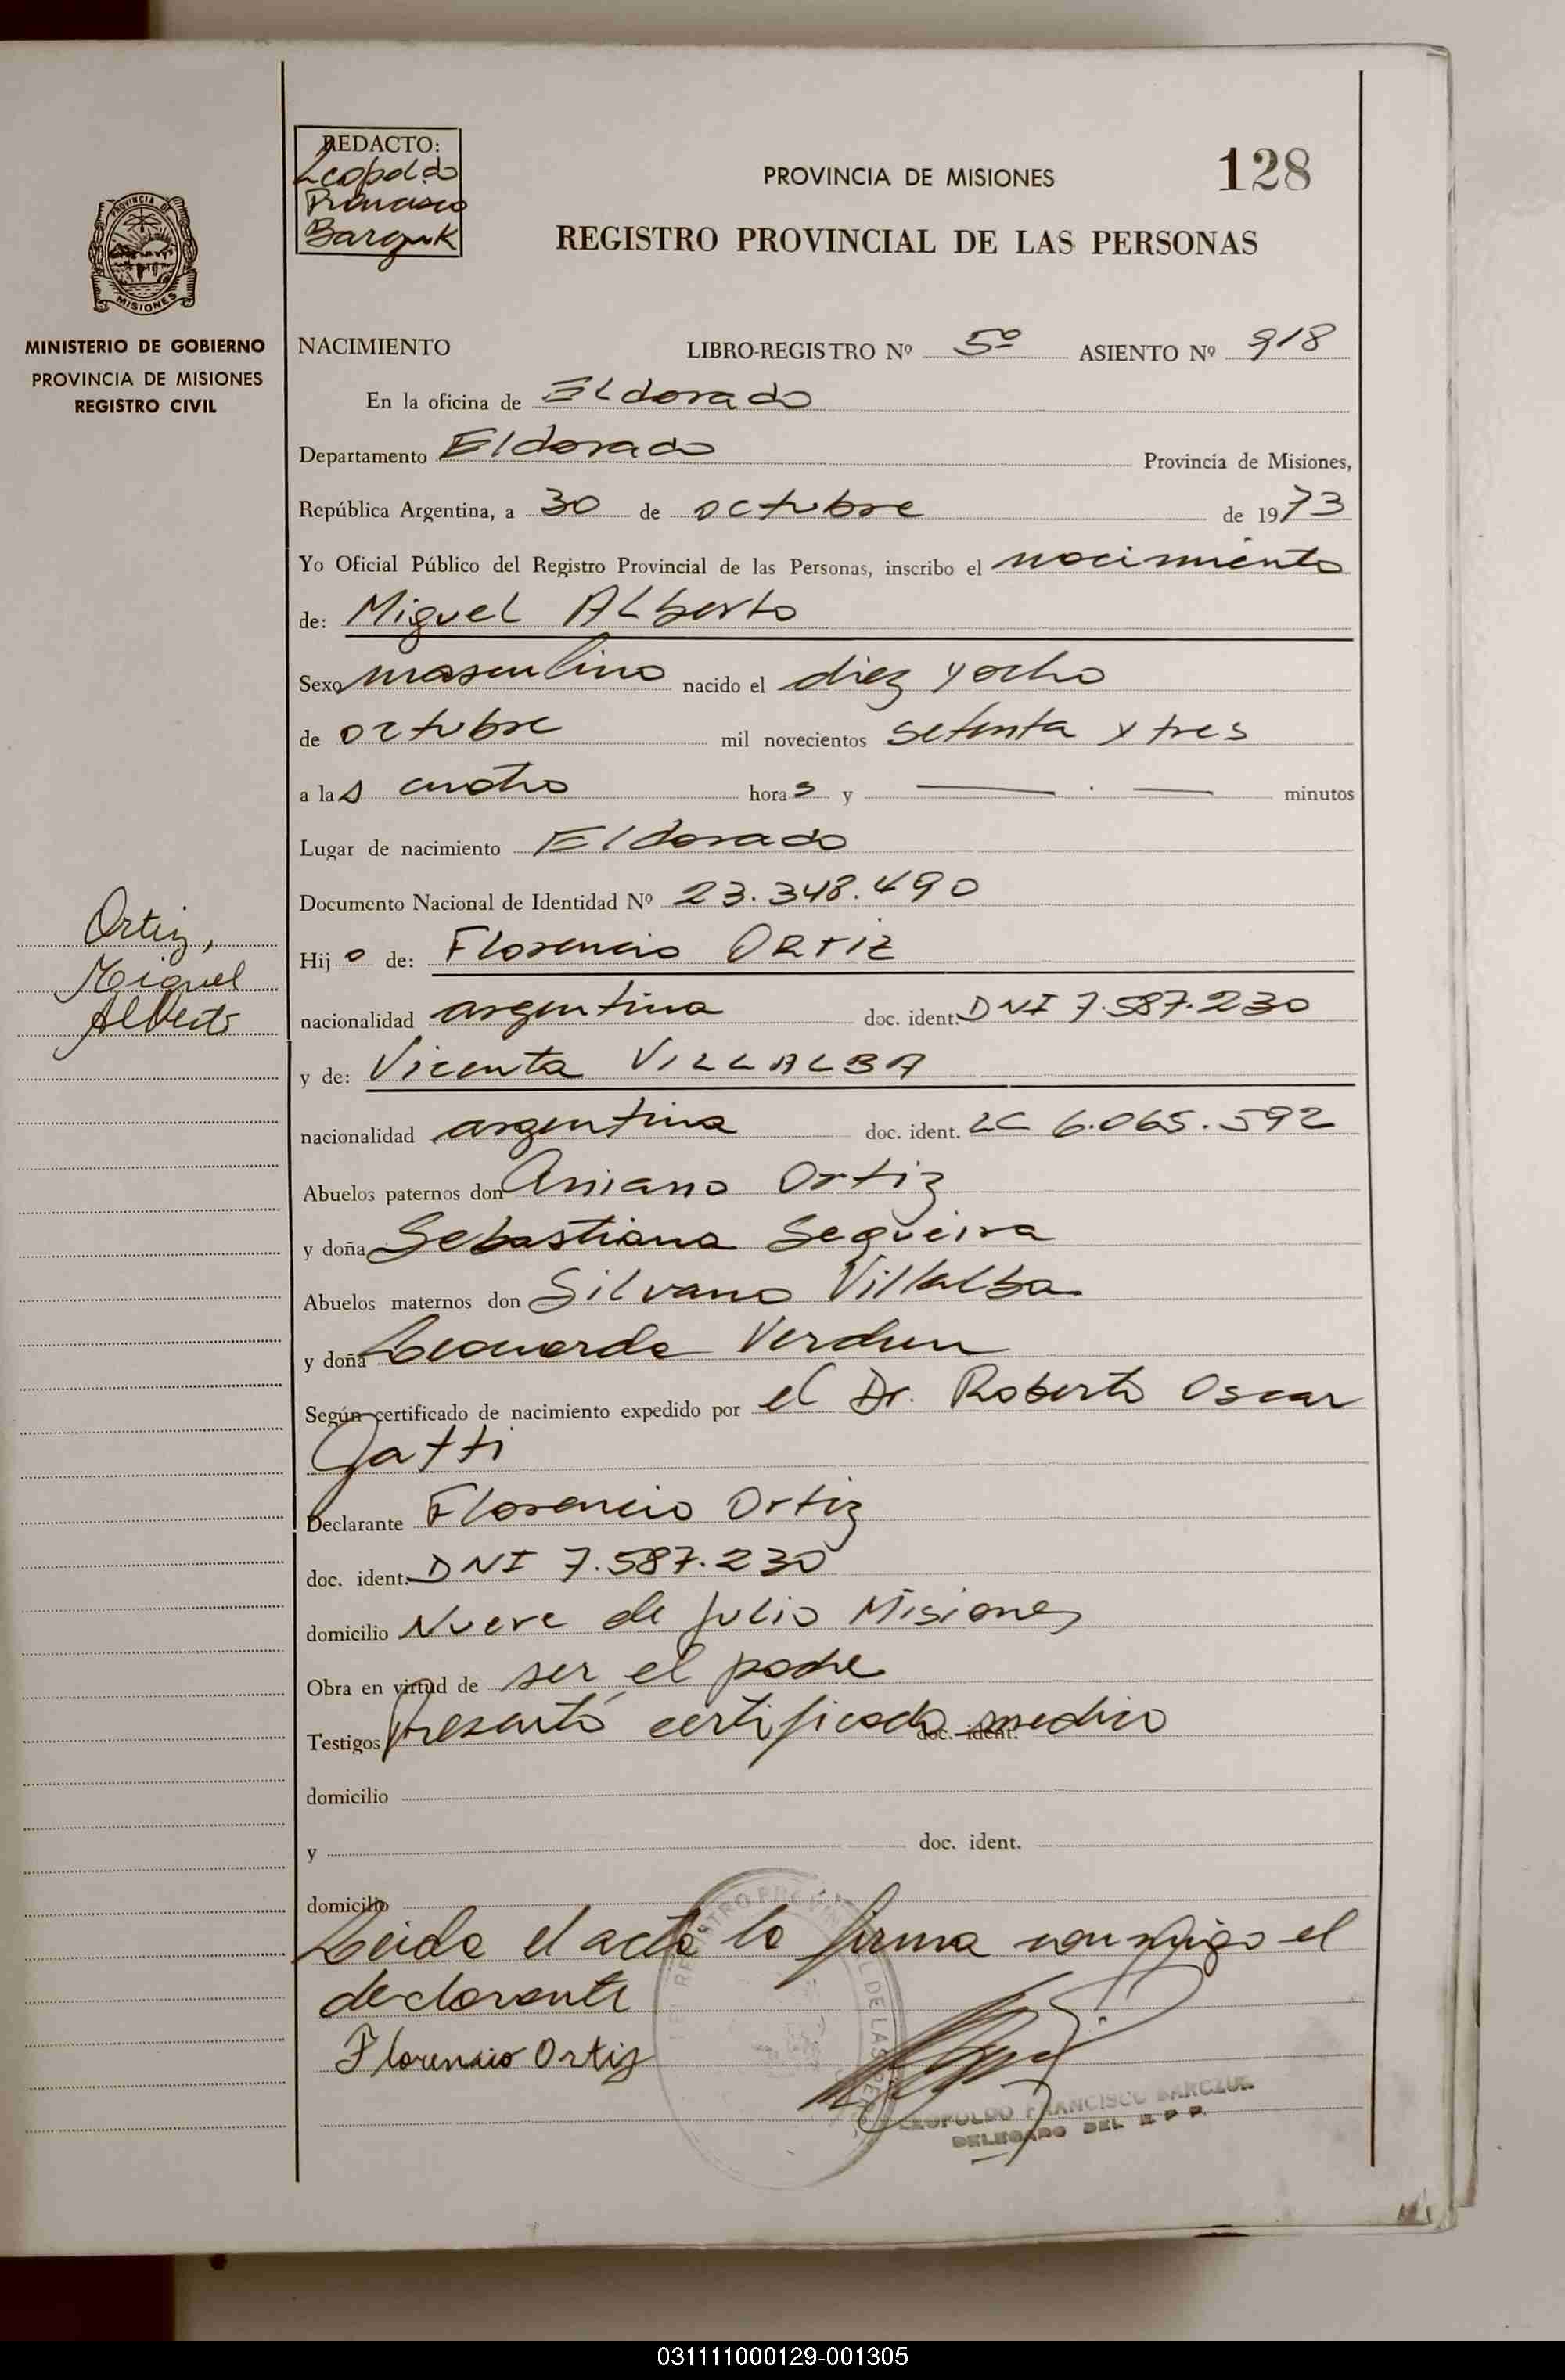 REDACTO:
Leopoldo
Francisco
Barczuk
PROVINCIA DE MISIONES
128
REGISTRO PROVINCIAL DE LAS PERSONAS
PROVINCIA DE
MISIONES
MINISTERIO DE GOBIERNO
PROVINCIA DE MISIONES
REGISTRO CIVIL
NACIMIENTO LIBRO-REGISTRO Nº 5º ASIENTO Nº 918
En la oficina de Eldorado
Departamento Eldorado Provincia de Misiones,
República Argentina, a 30 de octubre de 1973
Yo Oficial Público del Registro Provincial de las Personas, inscribo el nacimiento
de: Miguel Alberto
Sexo masculino nacido el diez y ocho
de octubre mil novecientos setenta y tres
a las cuatro horas y — . — minutos
Lugar de nacimiento Eldorado
Documento Nacional de Identidad Nº 23.348.490
Ortiz,
Miguel
Alberto
Hijo de: Florencio ORTIZ
nacionalidad argentina doc. ident. DNI 7.587.230
y de: Vicenta VILLALBA
nacionalidad argentina doc. ident. LC 6.065.592
Abuelos paternos don Aniano Ortiz
y doña Sebastiana Sequeira
Abuelos maternos don Silvano Villalba
y doña Leonarda Verdun
Según certificado de nacimiento expedido por el Dr. Roberto Oscar
Gatti
Declarante Florencio Ortiz
doc. ident. DNI 7.587.230
domicilio Nueve de Julio Misiones
Obra en virtud de ser el padre
Testigos Presentó certificado medico doc. ident.
domicilio
y doc. ident.
domicilio
Leida el acta la firma conmigo el
declarante
Florencio Ortiz
LEOPOLDO FRANCISCO BARCZUK
DELEGADO DEL R P P
031111000129-001305